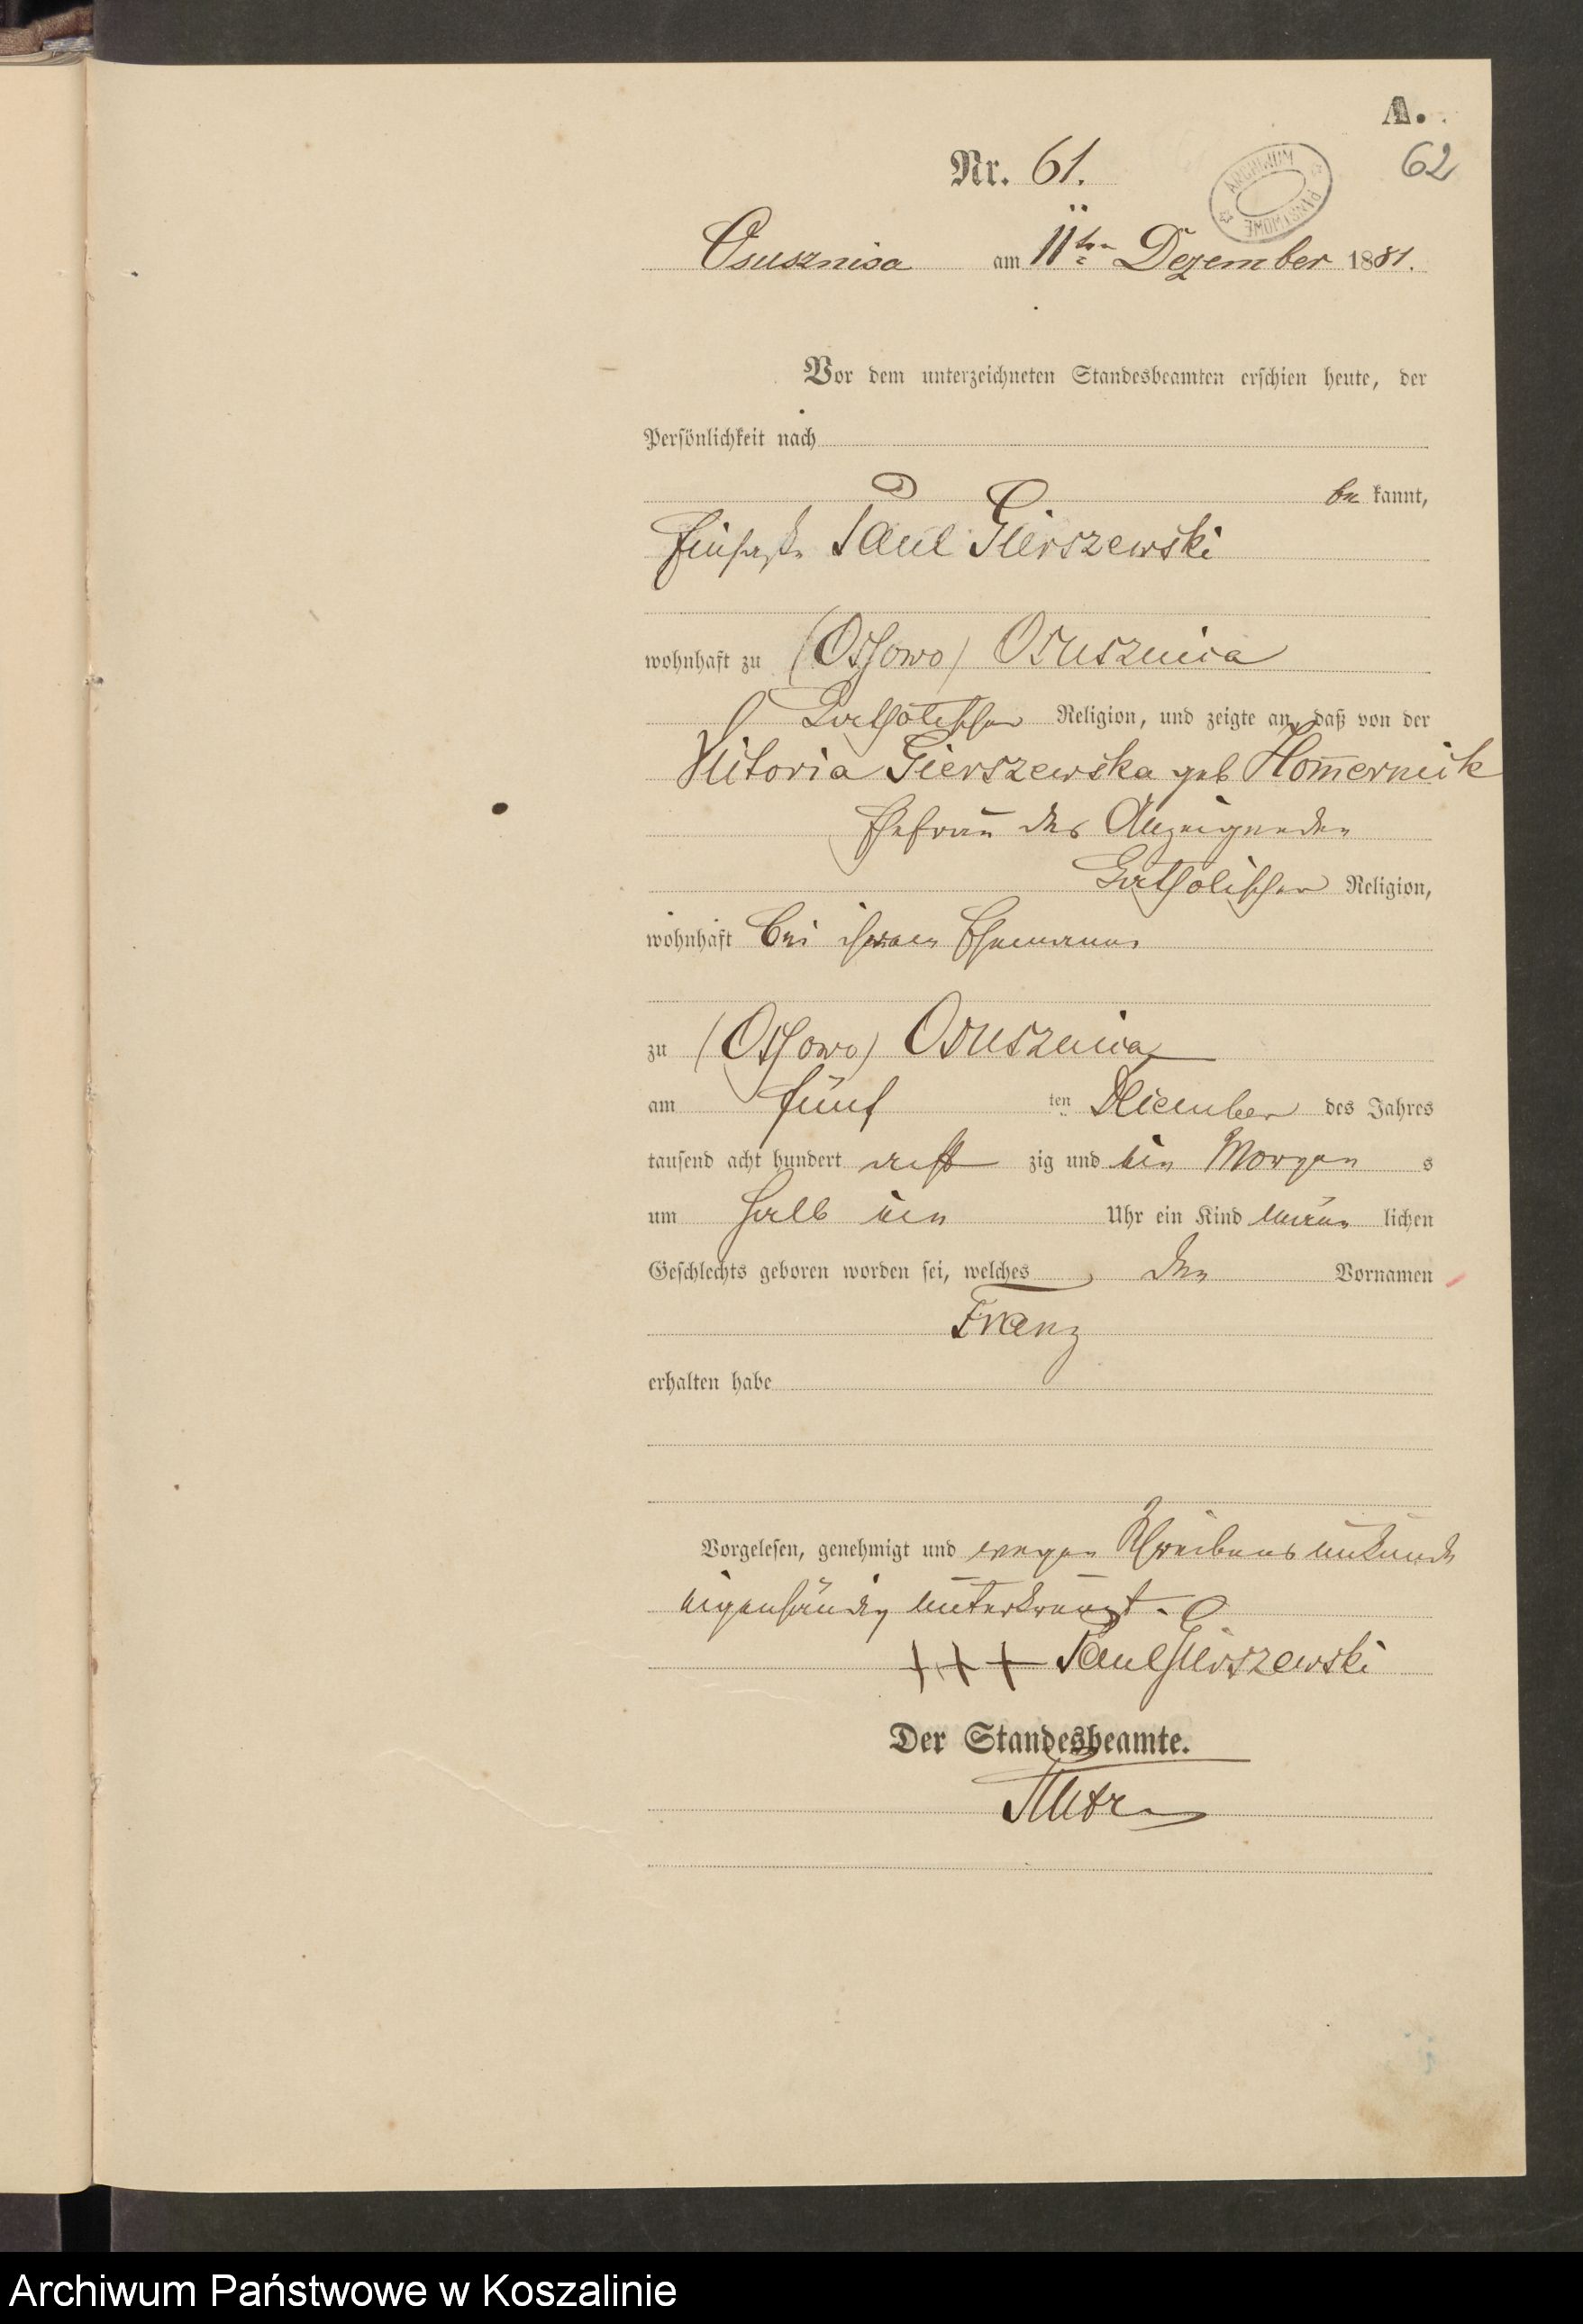 A.
62
Nr. 61.
ARCHIWUM PAŃSTWOWE
Osusznica am 11ten Dezember 1881.
Vor dem unterzeichneten Standesbeamten erschien heute, der
Persönlichkeit nach
be kannt,
Einsaße Paul Gierszewski
wohnhaft zu (Ossowo) Osusznica
katholischer Religion, und zeigte an, daß von der
Gierszewska geb
Ehefrau des Anzeigenden
katholischer Religion,
wohnhaft bei ihrem Ehemanne
zu (Ossowo) Osusznica
am fünf ten December des Jahres
tausend acht hundert acht zig und ein Morgen s
um halb ein Uhr ein Kind männ lichen
Geschlechts geboren worden sei, welches den Vornamen
Franz
erhalten habe
Vorgelesen, genehmigt und wegen Schreibensunkunde
eigenhändig unterkreuzt.
+++ Paul Gierszewski
Der Standesbeamte.
Archiwum Państwowe w Koszalinie